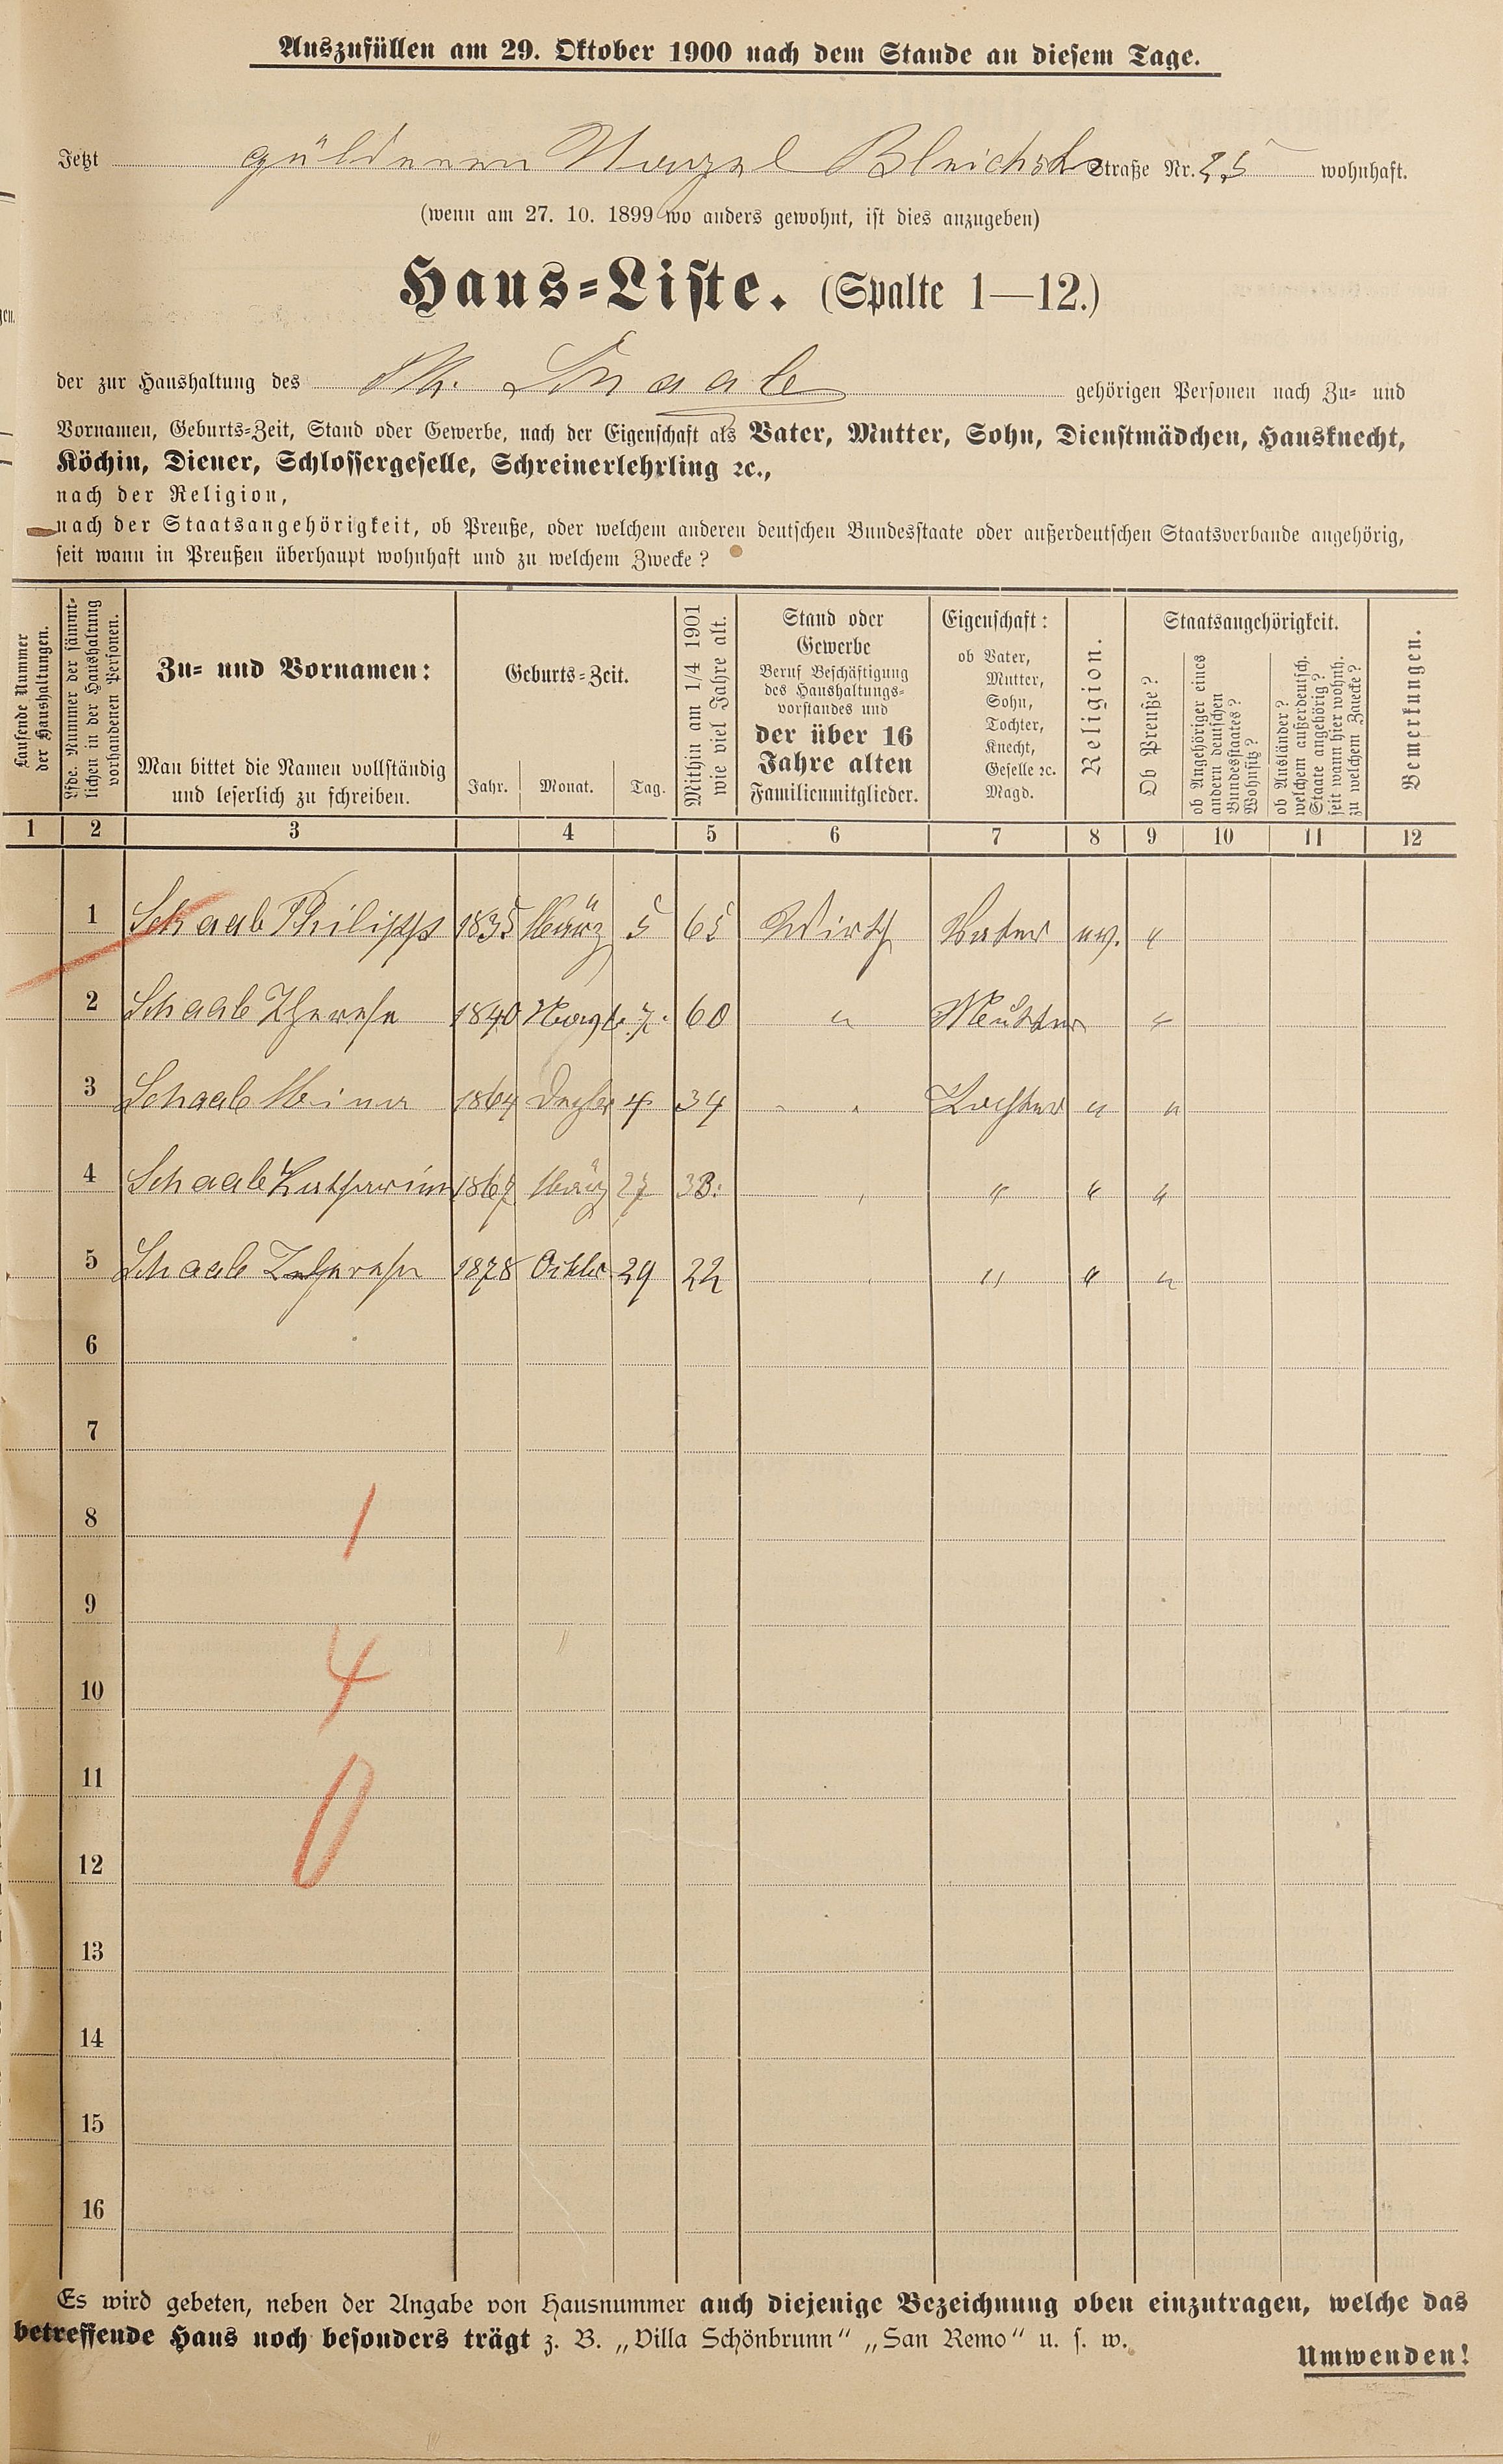 Auszufüllen am 29. Oktober 1900 nach dem Stande an diesem Tage.
Jetzt güldenen Straße Nr. 25 wohnhaft.
(wenn am 27. 10. 1899 wo anders gewohnt, ist dies anzugeben)
Haus-Liste. (Spalte 1—12.)
der zur Haushaltung des Ph. Schaab gehörigen Personen nach Zu- und
Vornamen, Geburts-Zeit, Stand oder Gewerbe, nach der Eigenschaft als Vater, Mutter, Sohn, Dienstmädchen, Hausknecht,
Köchin, Diener, Schlossergeselle, Schreinerlehrling ꝛc.,
nach der Religion,
nach der Staatsangehörigkeit, ob Preuße, oder welchem anderen deutschen Bundesstaate oder außerdeutschen Staatsverbande angehörig,
seit wann in Preußen überhaupt wohnhaft und zu welchem Zwecke?
Laufende Nummer der Haushaltungen.
Lfde. Nummer der sämmtlichen in der Haushaltung vorhandenen Personen.
Zu- und Vornamen:
Man bittet die Namen vollständig
und leserlich zu schreiben.
Geburts-Zeit.
Jahr. Monat. Tag.
Mithin am 1/4 1901 wie viel Jahre alt.
Stand oder
Gewerbe
Beruf Beschäftigung
des Haushaltungs-
vorstandes und
der über 16
Jahre alten
Familienmitglieder.
Eigenschaft:
ob Vater,
Mutter,
Sohn,
Tochter,
Knecht,
Geselle ꝛc.
Magd.
Religion.
Staatsangehörigkeit.
Ob Preuße?
ob Angehöriger eines andern deutschen Bundesstaates? Wohnsitz?
ob Ausländer? welchem außerdeutsch. Staate angehörig? seit wann hier wohnh. zu welchem Zwecke?
Bemerkungen.
1 2 3 4 5 6 7 8 9 10 11 12
1 Schaab Philipp 1835 März 5 65 Wirth Vater ev. "
2 Schaab Therese 1840 7. 60 " Mutter "
3 Schaab 1864 Dezbr 4 34 Tochter " "
4 Schaab Katharina 1867 März 27 33. " " "
5 Schaab Therese 1878 Octbr 29 22 " " "
6
7
8 1
9
10 4
11
12 0
13
14
15
16
Es wird gebeten, neben der Angabe von Hausnummer auch diejenige Bezeichnung oben einzutragen, welche das
betreffende Haus noch besonders trägt z. B. „Villa Schönbrunn" „San Remo" u. s. w.
Umwenden!